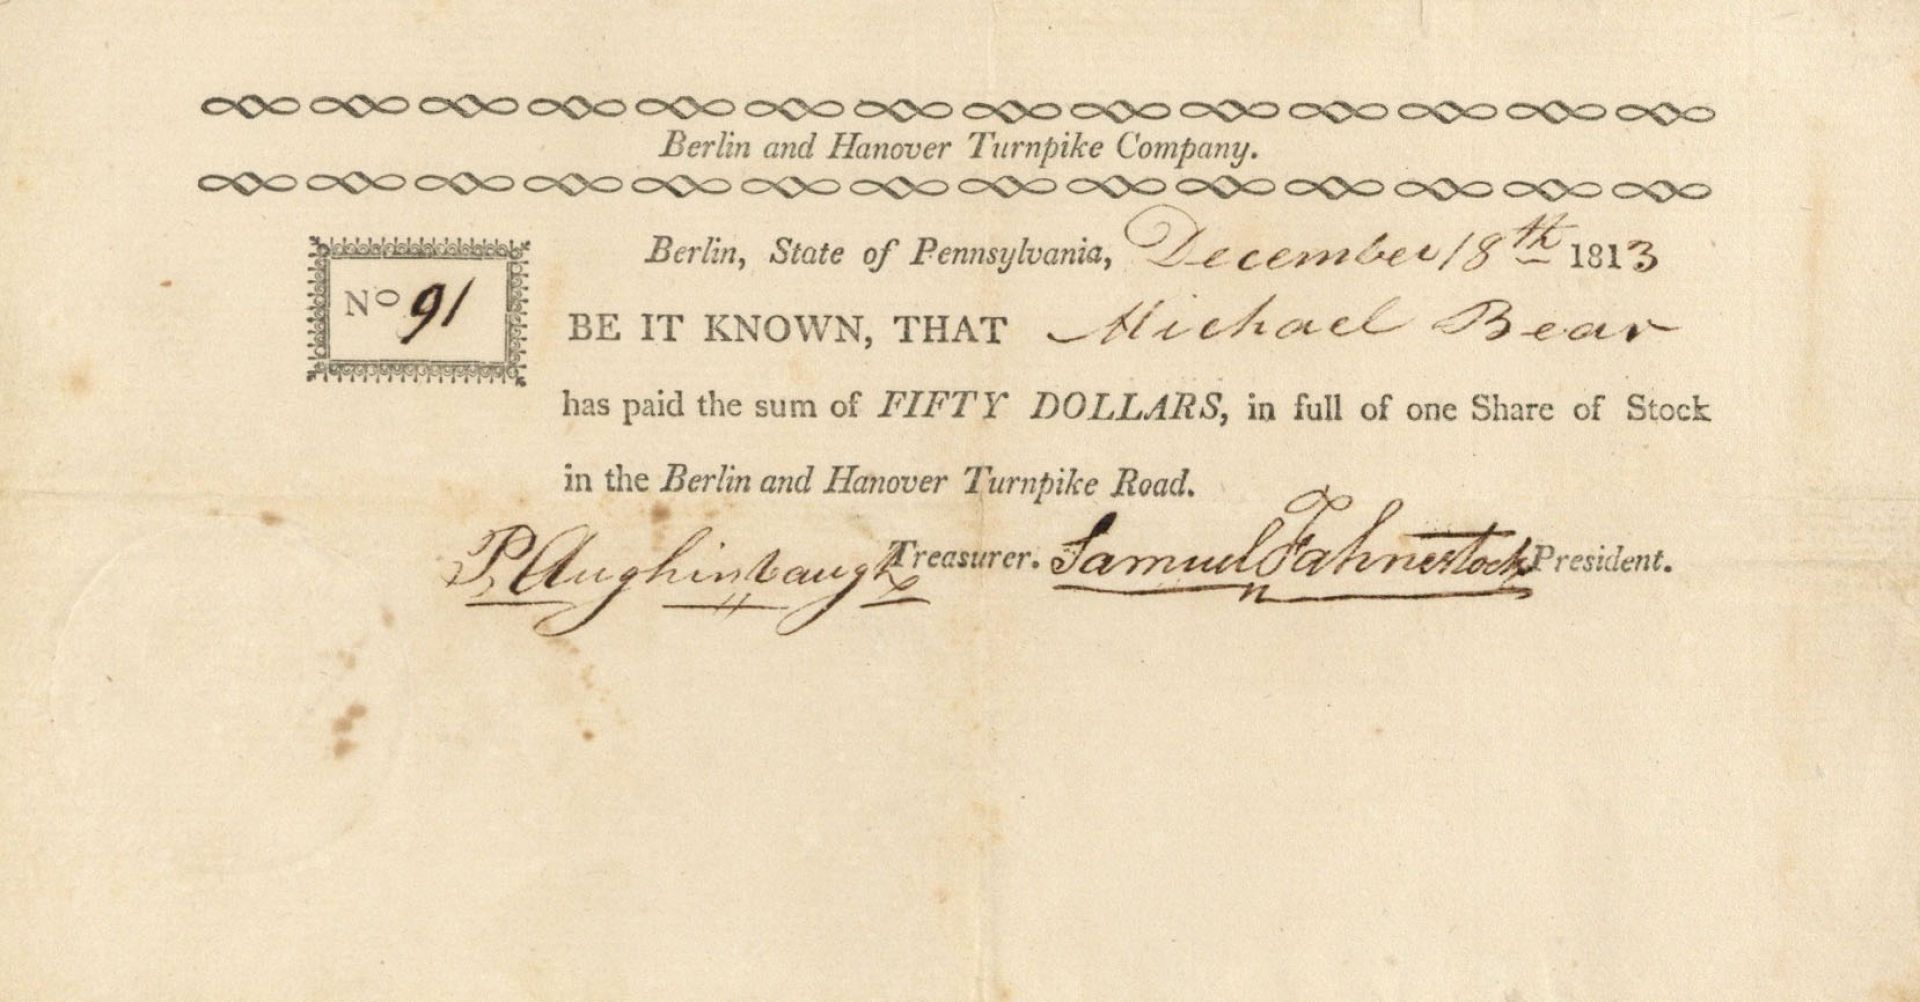 Berlin and Hanover Turnpike Company.
Berlin, State of Pennsylvania, December 18th 1813
No 91
BE IT KNOWN, THAT Michael Bear
has paid the sum of FIFTY DOLLARS, in full of one Share of Stock
in the Berlin and Hanover Turnpike Road.
P. Aughinbaugh Treasurer. Samuel Fahnestock President.